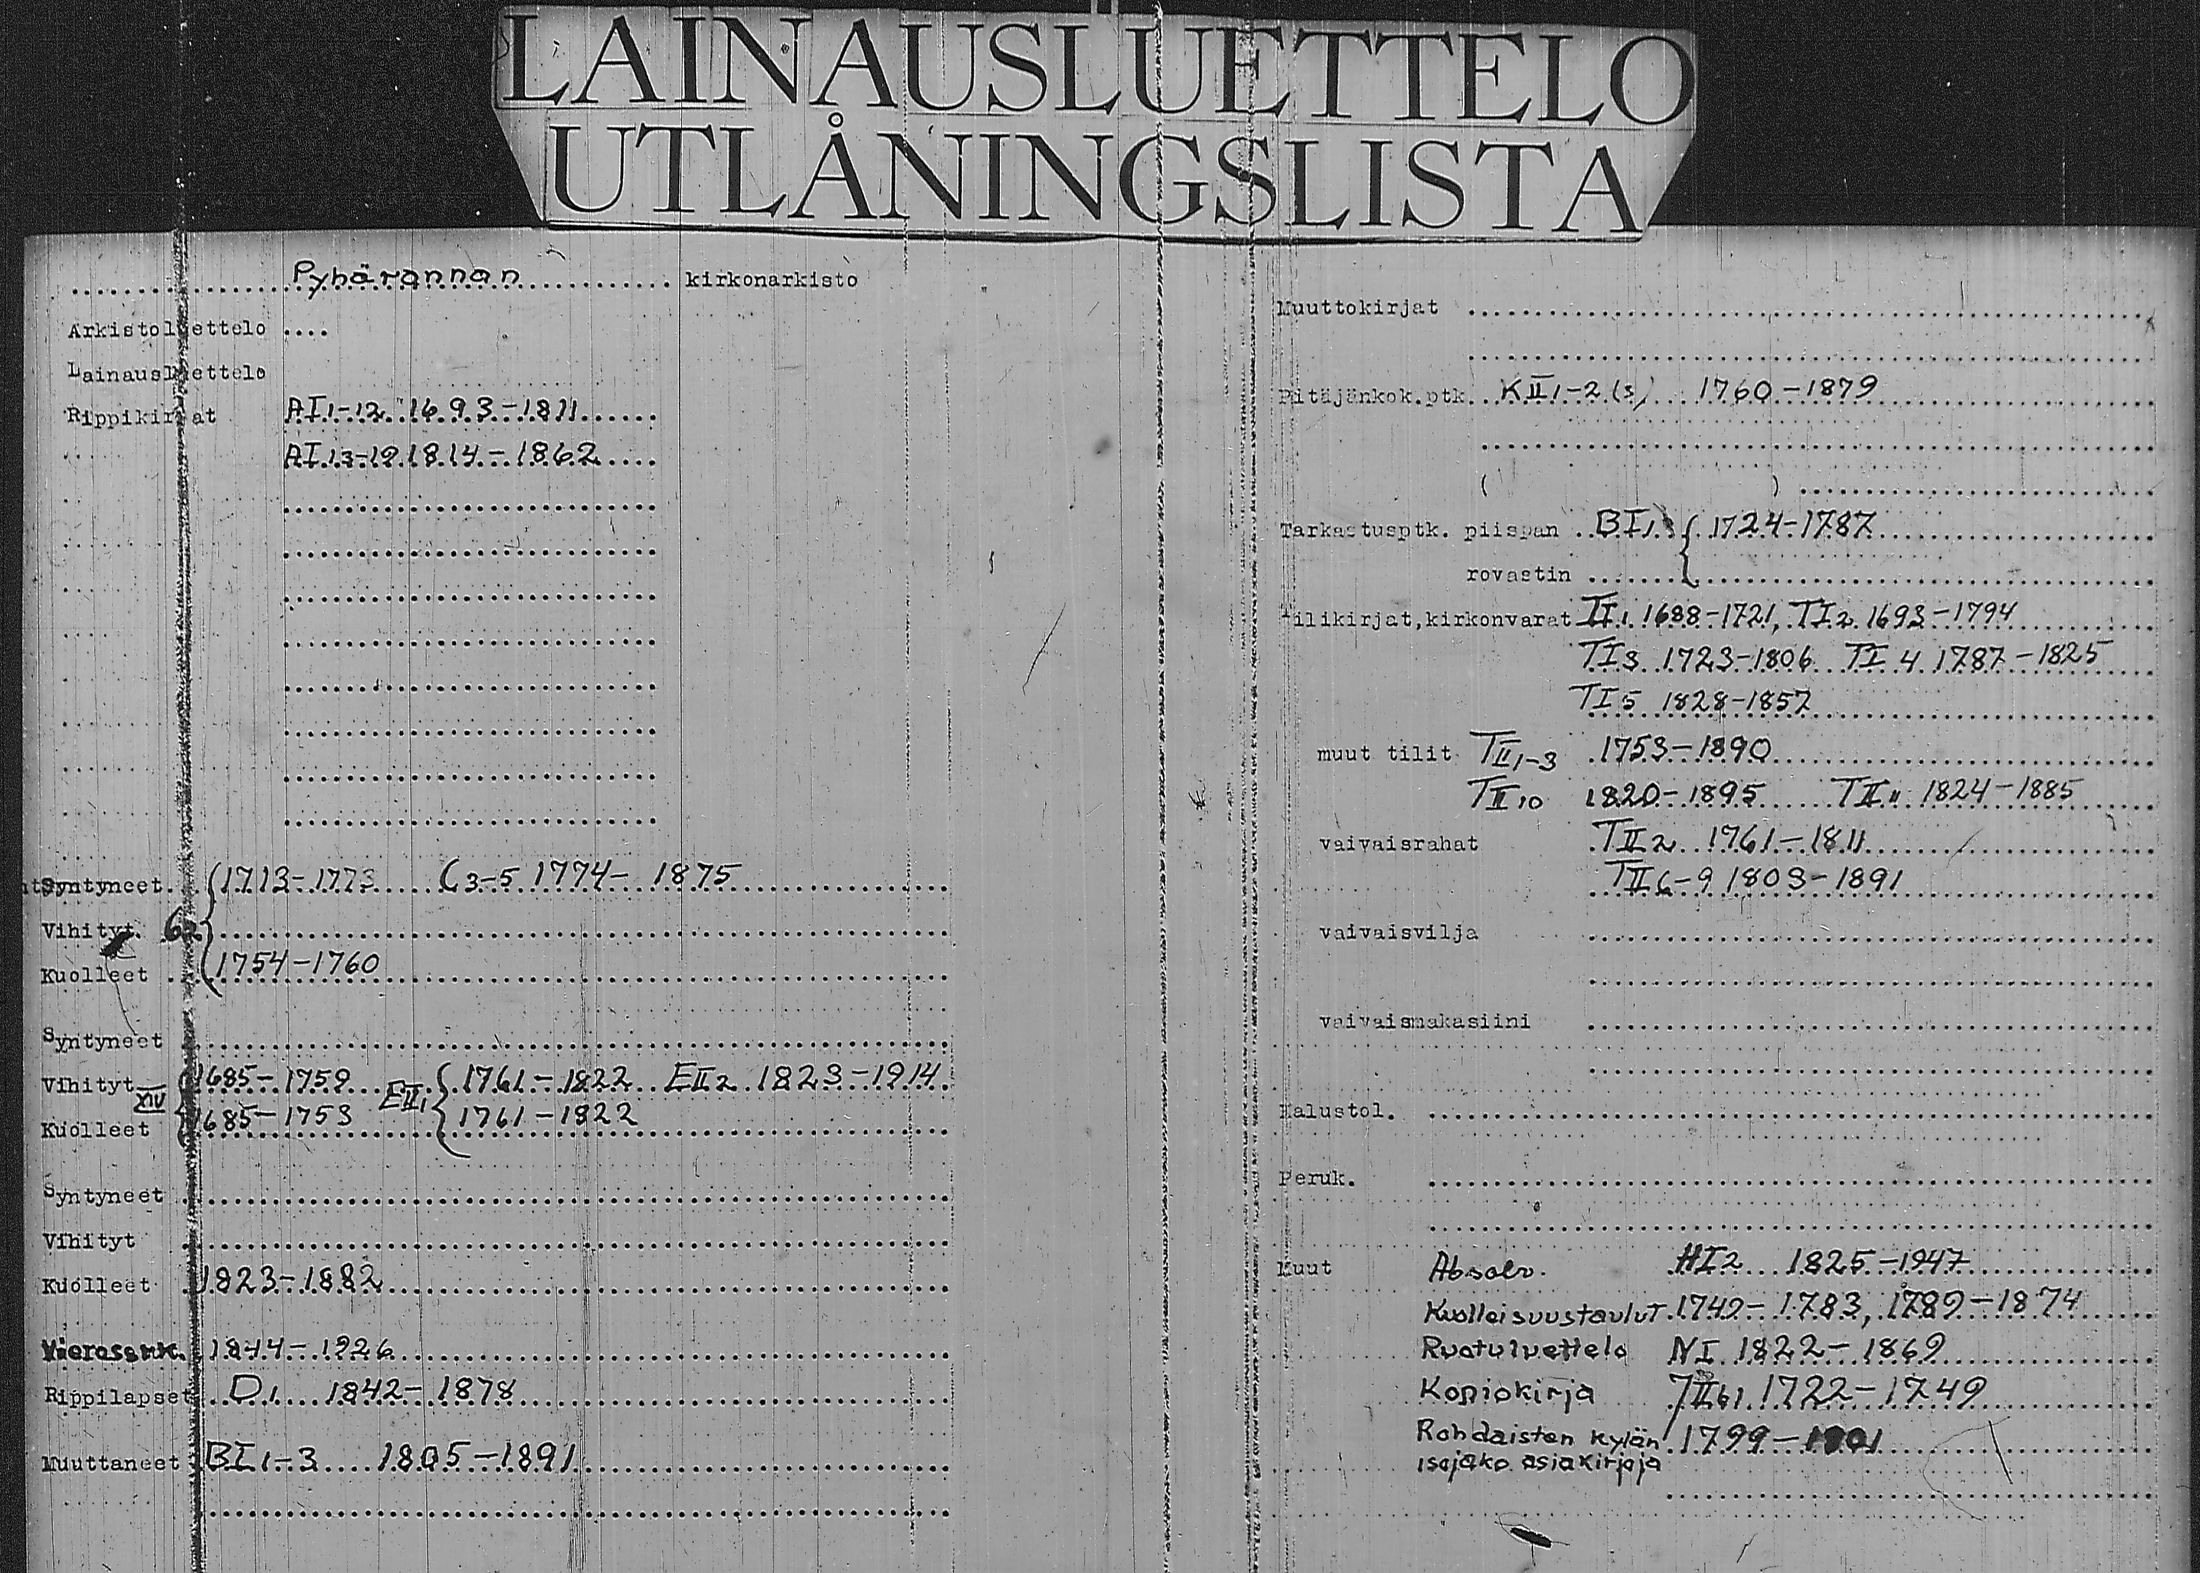 LAINAUSLUETTELO
UTLÅNINGSLISTA
Pyhärannan kirkonarkisto
Arkistoluettelo
Lainausluettelo
Rippikirjat AI1-12 1693-1811
AI13-19 1814-1862
Syntyneet 1713-1773 C3-5 1774-1875
Vihityt
Kuolleet 1754-1760
Syntyneet
Vihityt 1685-1759 EII1 1761-1822 EII2 1823-1914
XIV
Kuolleet 1685-1753 1761-1822
Syntyneet
Vihityt
Kuolleet 1823-1882
Vierassrk. 1844-1926
Rippilapset D1 1842-1878
Muuttaneet BI1-3 1805-1891
Muuttokirjat
Pitäjänkok.ptk. KII1-2(s) 1760-1879
( )
Tarkastusptk. piispan BI1 1724-1787
rovastin
Tilikirjat,kirkonvarat TI1 1688-1721, TI2 1693-1794
TI3 1723-1806 TI4 1787-1825
TI5 1828-1857
muut tilit TII1-3 1753-1890
TII10 1820-1895 TII11 1824-1885
vaivaisrahat TII2 1761-1811
TII6-9 1803-1891
vaivaisvilja
vaivaismakasiini
Kalustol.
Peruk.
Muut Absolv. HI2 1825-1947
Kuolleisuustaulut 1749-1783, 1789-1874
Ruotuluettelo NI 1822-1869
Kopiokirja 1722-1749
Rohdaisten kylän 1799-1901
isojako asiakirjoja